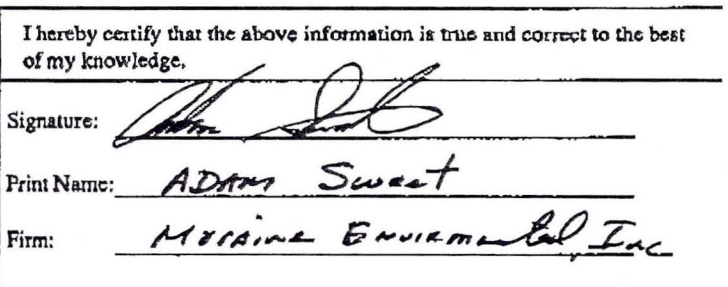 I hereby certify that the above information is true and correct to the best
of my knowledge.
Signature: Adam Sweet
Print Name: ADAM Sweet
Firm: Moraine Envirmental, Inc